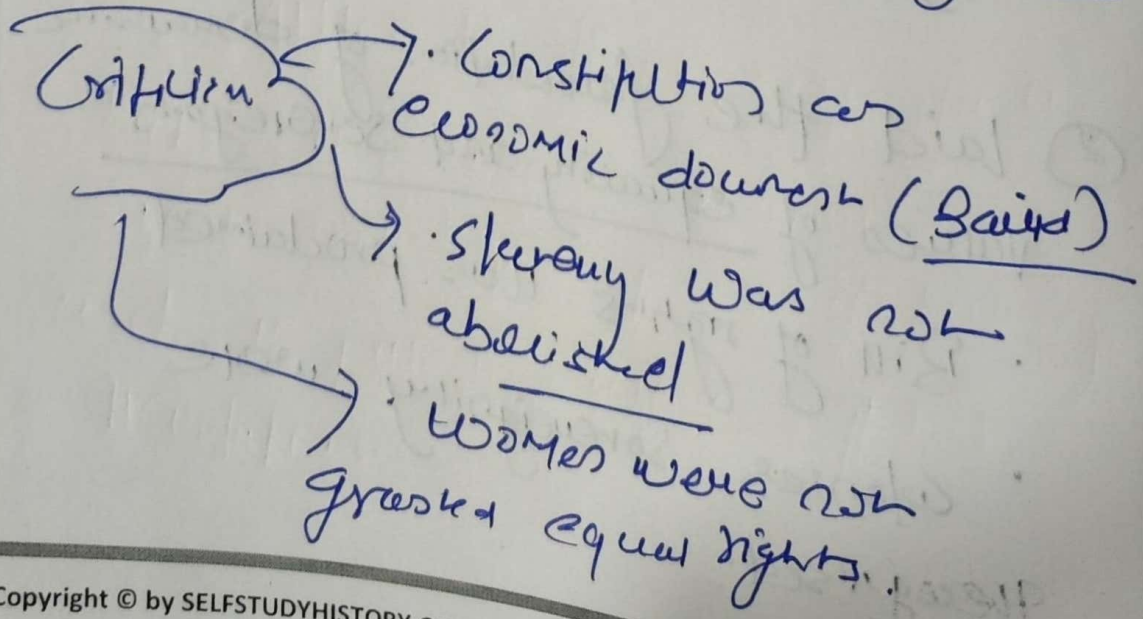 Criticism
· Constitution as
economic document (Baird)
· Slavery was not
abolished
· Women were not
granted equal rights.
Copyright © by SELFSTUDYHISTORY